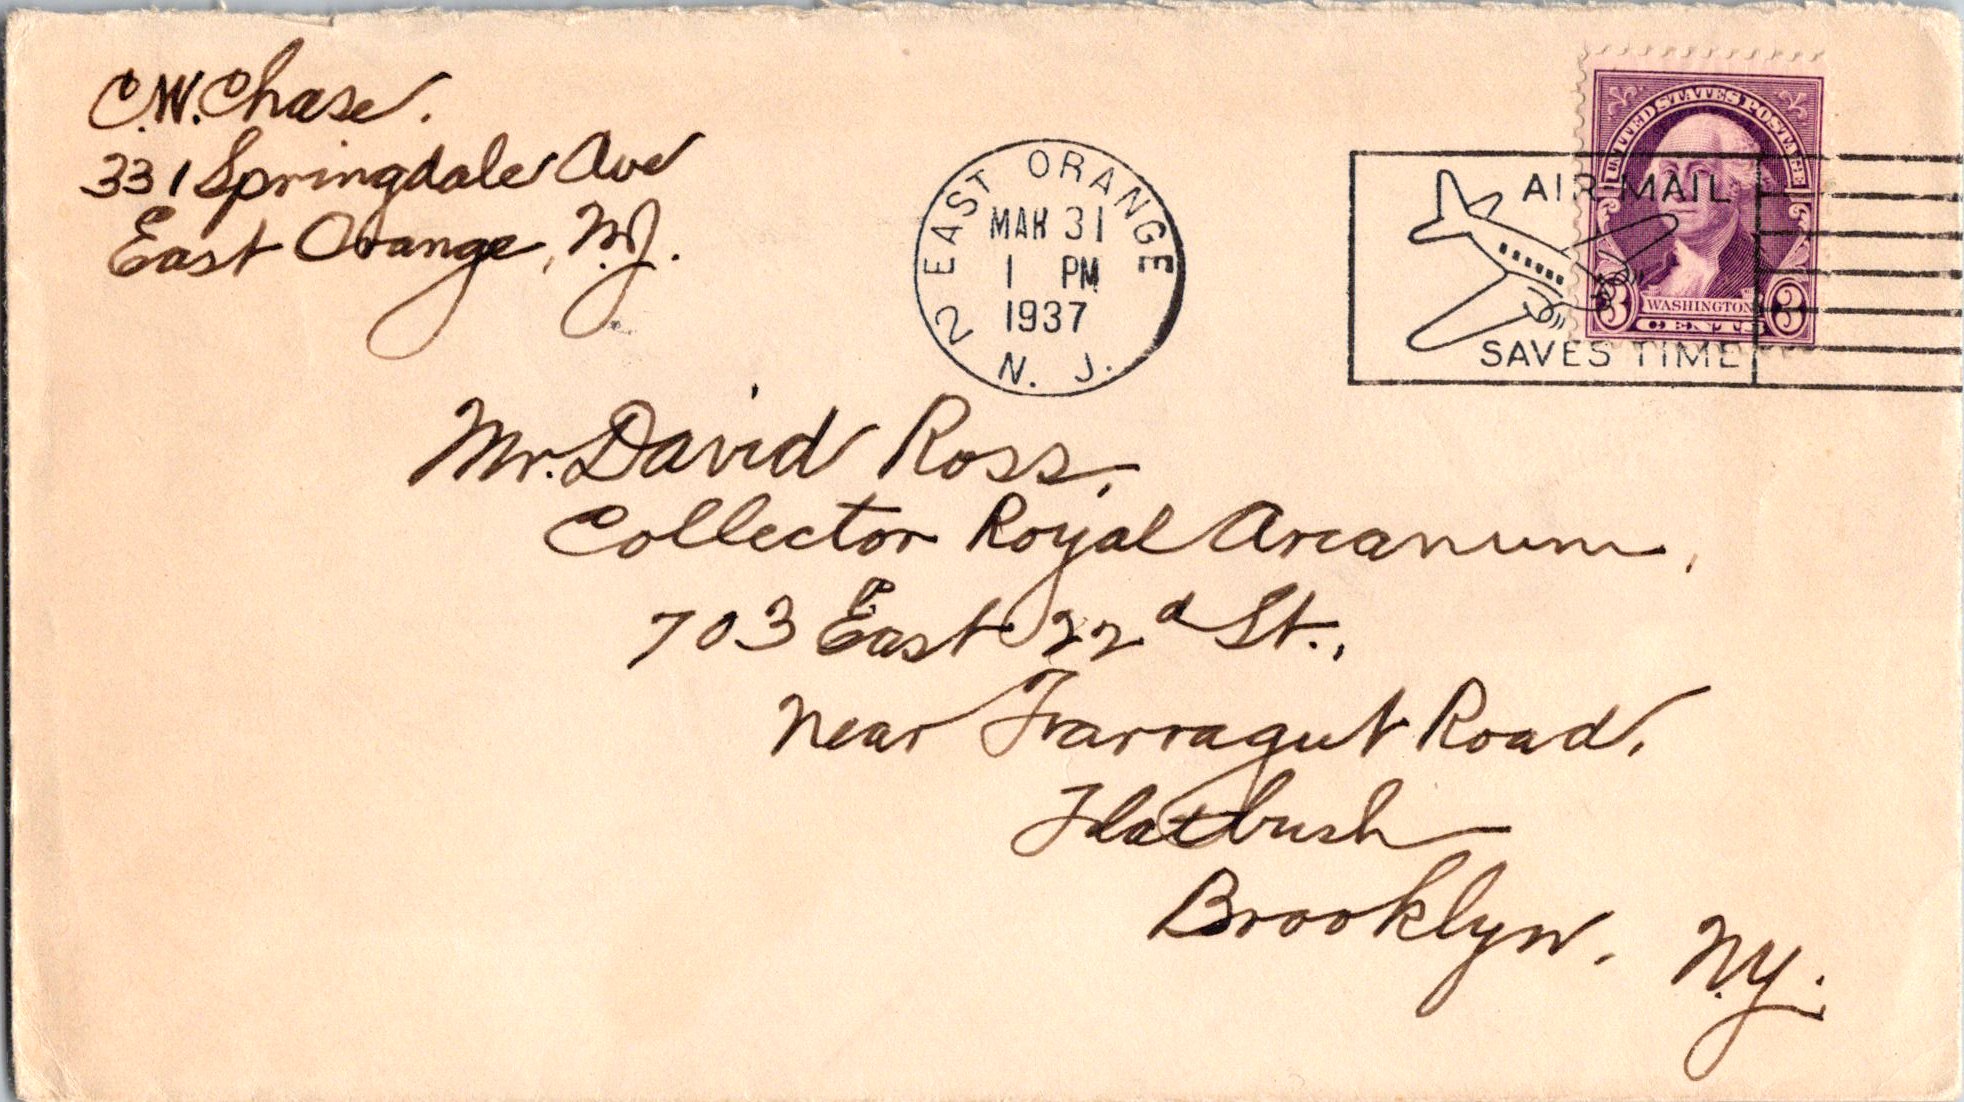 C.W. Chase.
331 Springdale Ave
East Orange, N.J.
EAST ORANGE
MAR 31
1 PM
1937
2
N. J.
AIR MAIL
SAVES TIME
UNITED STATES POSTAGE
3 WASHINGTON 3
CENTS
Mr. David Ross,
Collector Royal Arcanum,
703 East 22d St.,
near Farragut Road,
Flatbush
Brooklyn, N.Y.